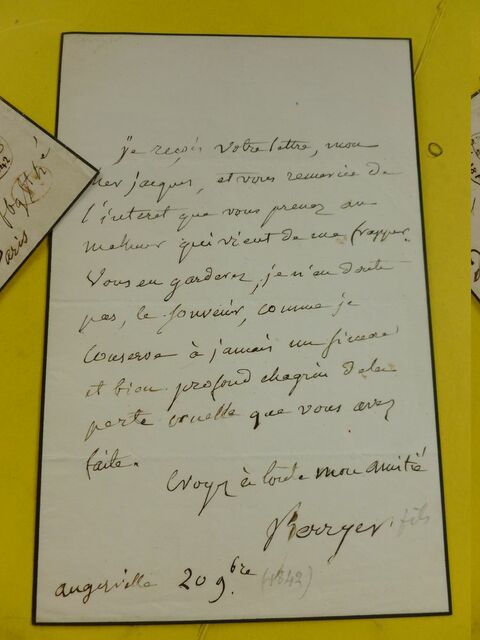 je reçois votre lettre, mon
cher jacques, et vous remercie de
l'interet que vous prenez au
malheur qui vient de me frapper.
Vous en garderez, je n'en doute
pas, le souvenir, comme je
conserve à jamais un sincere
et bien profond chagrin de la
perte cruelle que vous avez
faite.
Croyez à toute mon amitié
Berryer fils
augerville 20 9bre (1842)
42
Paris